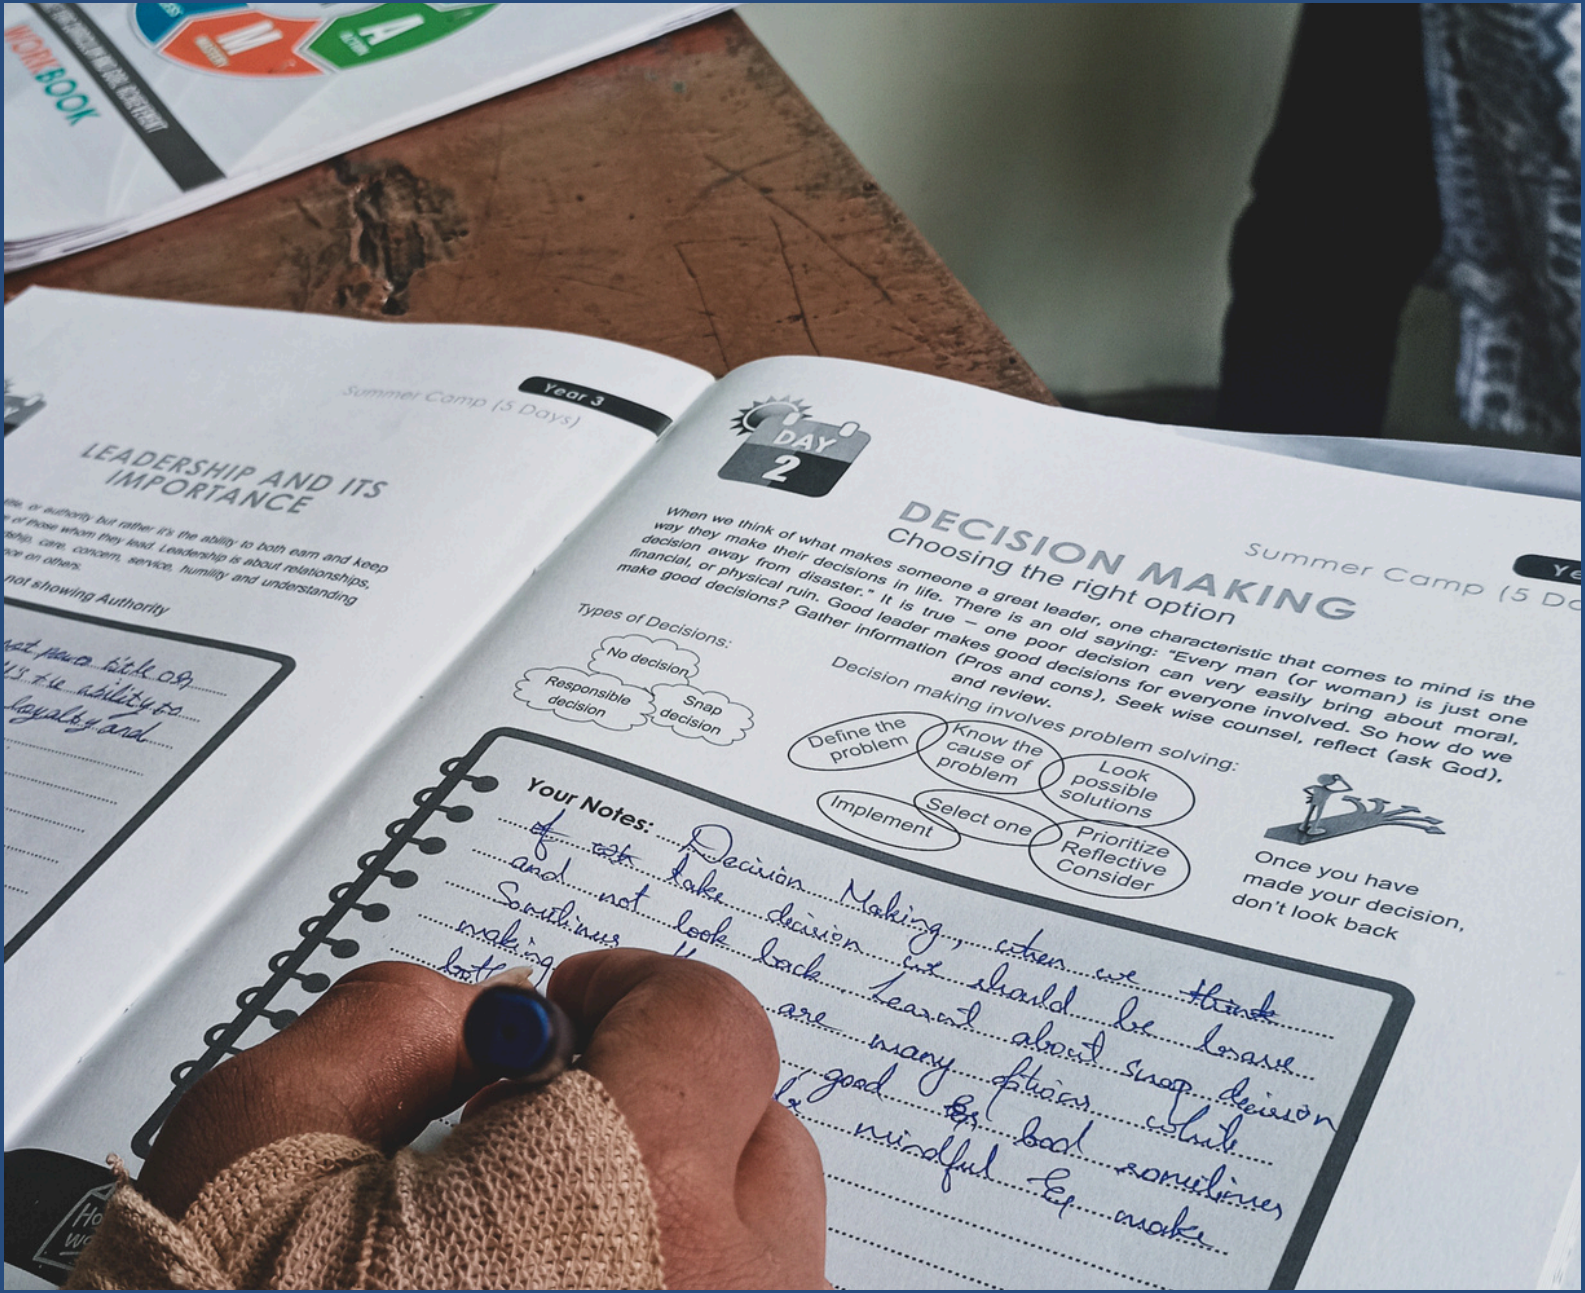 WORKBOOK
M
A
ACTION
Year 3
Summer Camp (5 Days)
LEADERSHIP AND ITS
IMPORTANCE
or authority but rather it's the ability to both earn and keep
of those whom they lead. Leadership is about relationships,
care, concern, service, humility and understanding
on others.
not showing Authority
power title or
the ability to
loyalty and
DAY
2
Summer Camp (5
DECISION MAKING
Choosing the right option
When we think of what makes someone a great leader, one characteristic that comes to mind is the
way they make their decisions in life. There is an old saying: "Every man (or woman) is just one
decision away from disaster." It is true – one poor decision can very easily bring about moral,
financial, or physical ruin. Good leader makes good decisions for everyone involved. So how do we
make good decisions? Gather information (Pros and cons), Seek wise counsel, reflect (ask God),
and review.
Types of Decisions:
No decision
Responsible
decision
Snap
decision
Decision making involves problem solving:
Define the
problem
Know the
cause of
problem
Look
possible
solutions
Implement
Select one
Prioritize
Reflective
Consider
Once you have
made your decision,
don't look back
Your Notes: Decision Making, when we think
of take decision we should be brave
and not look back. Learnt about snap decision
Sometimes are many options while
making good bad sometimes
both be mindful make